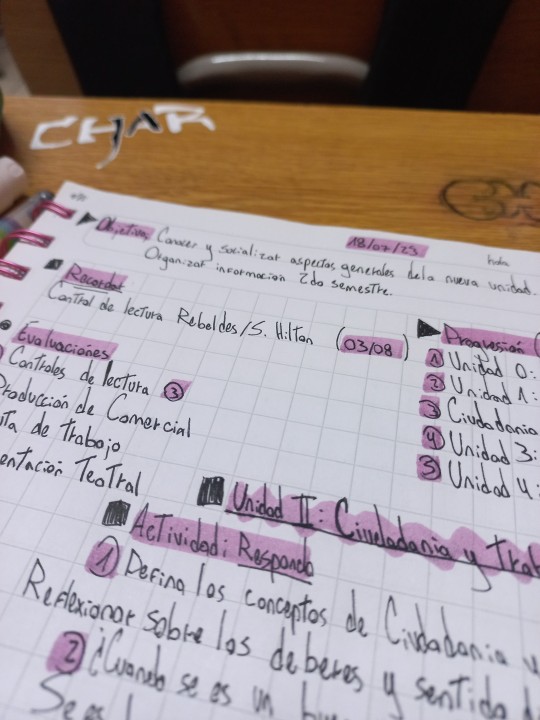 CHAR
18/07/23
hola
Objetivo: Conocer y socializar aspectos generales dela nueva unidad.
Organizar información 2do semestre.
Recordar
Control de lectura Rebeldes/S. Hilton (03/08)
Evaluaciones
Controles de lectura ③
Producción de Comercial
de Trabajo
Teatral
Progresión
1 Unidad 0:
2 Unidad 1:
3 Ciudadania
4 Unidad 3:
5 Unidad 4:
Unidad II: Ciudadania y
Actividad: Responda
1 Defina los conceptos de Ciudadania y
Reflexionar sobre los deberes y sentido
2 ¿Cuando se es un
Se es